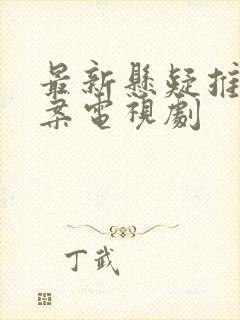 最新懸疑推
案電視劇
丁武